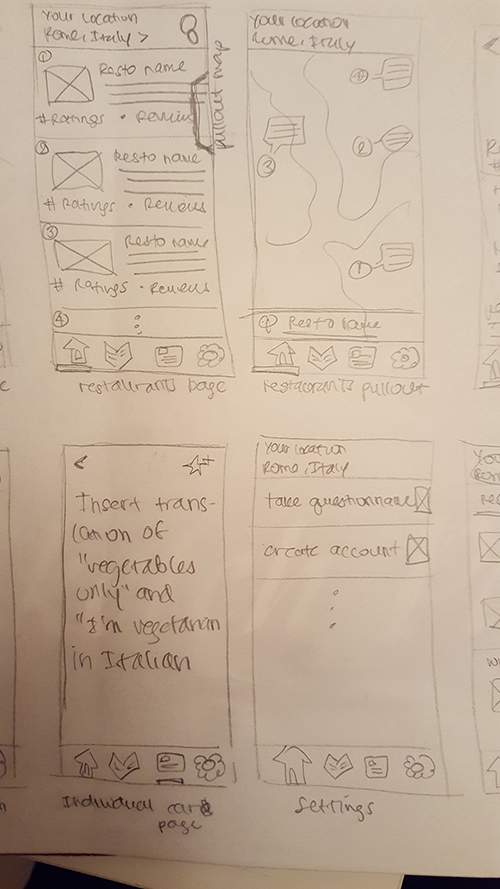 Your Location
Rome, Italy >
① Resto name
#Ratings • Reviews
pullout map
② Resto name
# Ratings • Reviews
③ Resto name
# Ratings • Reviews
④
restaurants page
Your Location
Rome, Italy
④
③
②
①
Resto name
restaurants pullout
<
Insert trans-
lation of
"vegetables
only" and
"I'm vegetarian
in Italian
Individual card
page
Your Location
Rome, Italy
take questionnaire
create account
settings